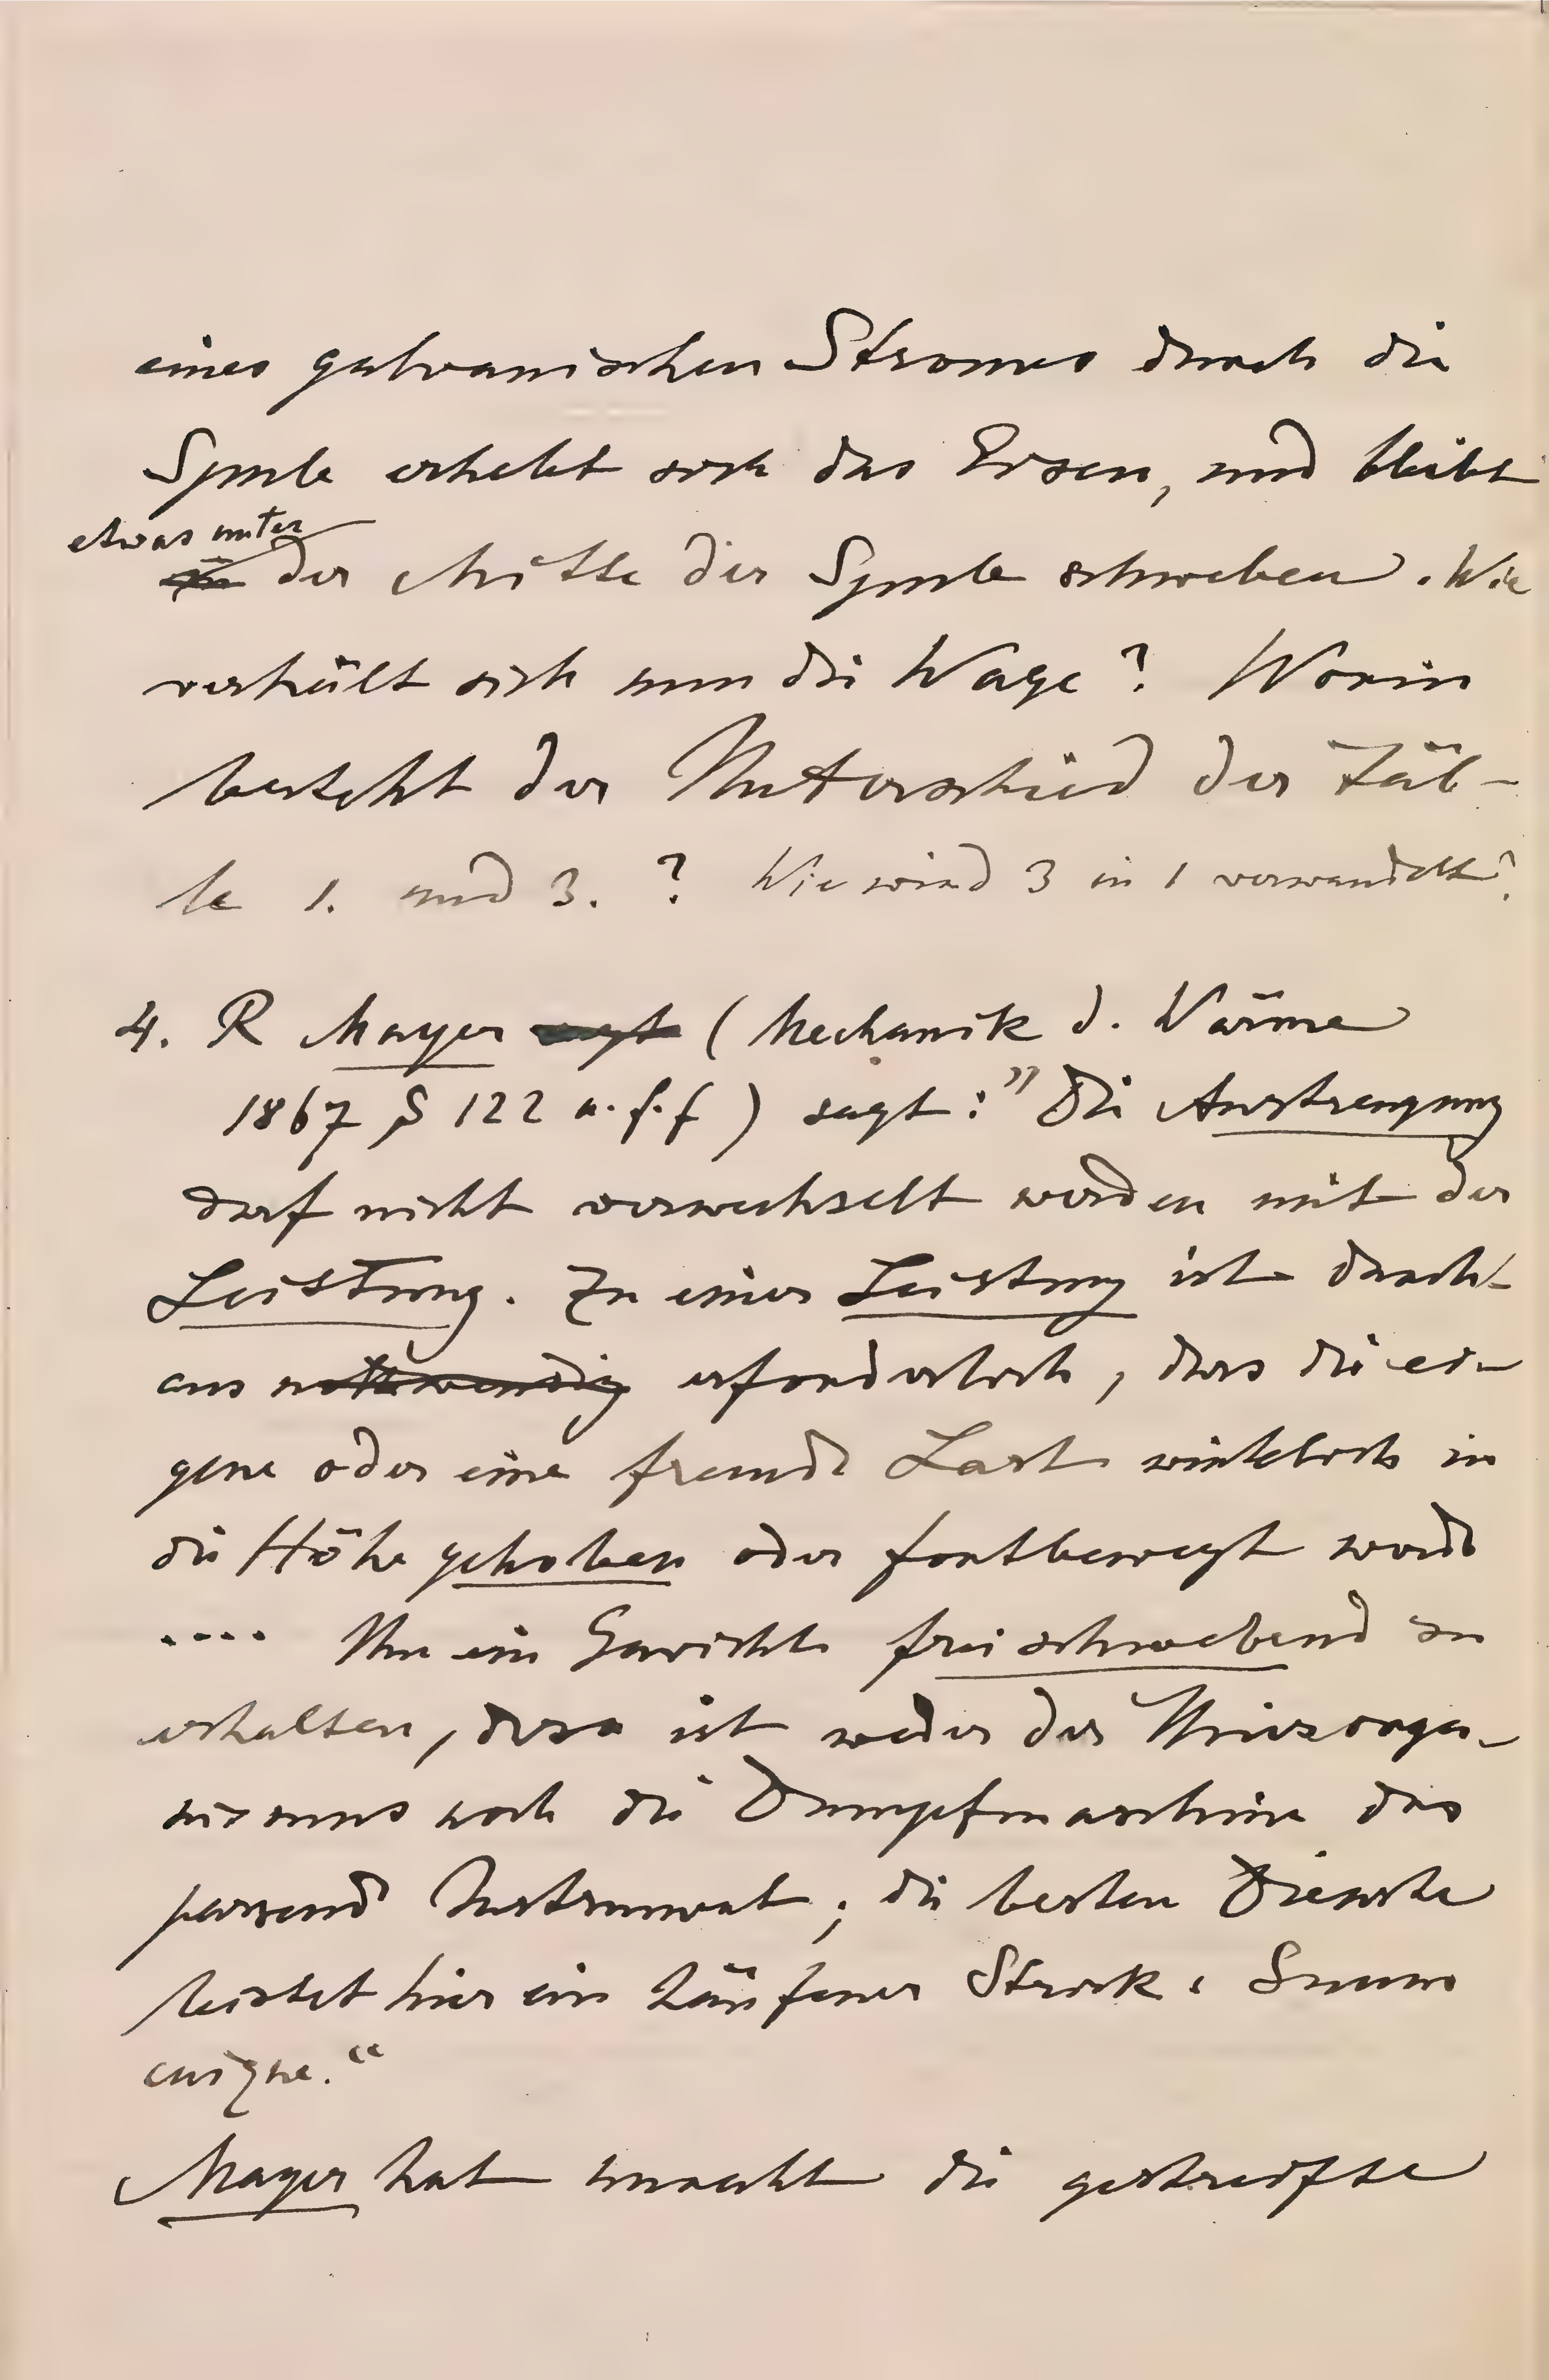 eines galvanischen Stromes durch die
Spule erhebt sich das Eisen, und bleibt
etwas unter
in der Mitte der Spule schweben. Wie
verhält sich nun die Wage? Worin
besteht der Unterschied der Fäl-
le 1. und 3. ? Wie wird 3 in 1 verwandelt?
4. R Mayer sagt (Mechanik d. Wärme
1867 S 122 u. f. f) sagt: "Die Anstrengung
darf nicht verwechselt werden mit der
Leistung. Zu einer Leistung ist durch-
aus nothwendig erforderlich, dass die ei-
gene oder eine fremde Last wirklich in
die Höhe gehoben oder fortbewegt werde
.... Um ein Gewicht frei schwebend zu
erhalten, dazu ist weder der Thierorga-
nismus noch die Dampfmaschine das
passende Instrument; die besten Dienste
leistet hier ein hänfener Strick. Suum
cuique."
Mayer hat die gestreifte